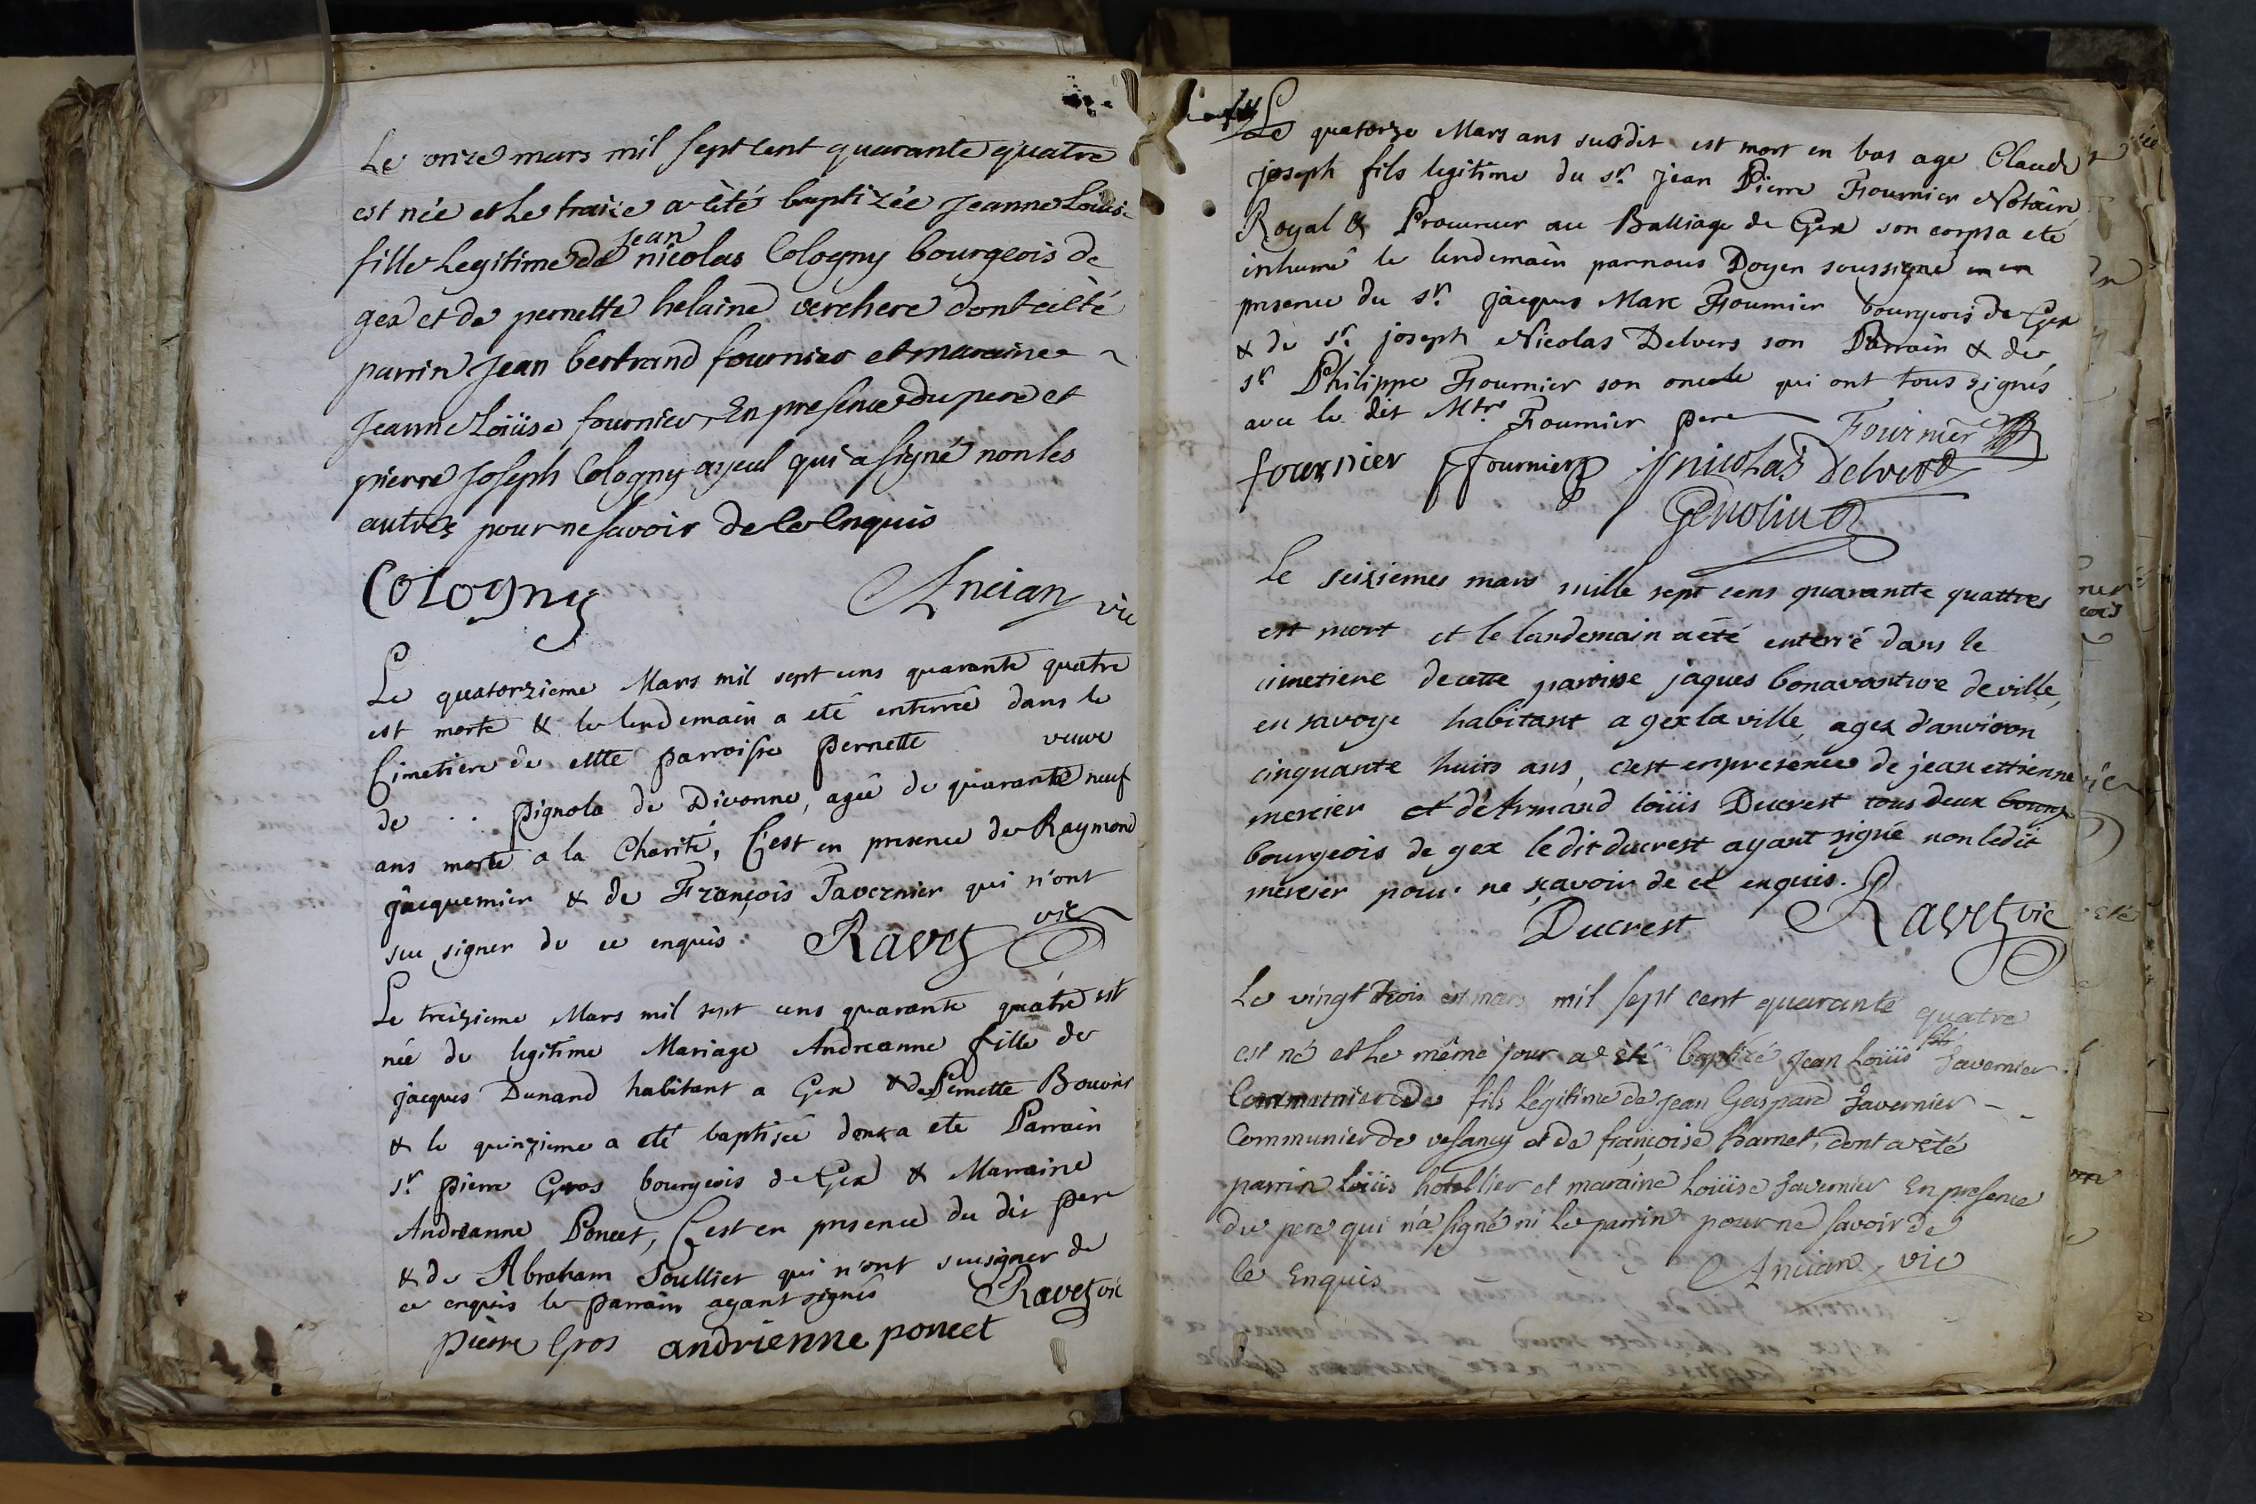 Le onze mars mil sept cent quarante quatre
est née et le traize a été baptizée Jeanne Louise
fille legitime de jean nicolas Cologny bourgeois de
gex et de pernette helaine verchere dont a été
parrin Jean bertrand fournier et maraine
Jeanne Loüise fournier, En presence du pere et
pierre Joseph Cologny ayeul qui a signé non les
autres pour ne savoir de ce Enquis
Cologny Ancian vic
Le quatorzieme Mars mil sept cens quarante quatre
est morte & le lendemain a eté enterrée dans le
Cimetiere de cette parroisse pernette veuve
de .. pignola de Divonne, agée de quarante neuf
ans morte a la Charité, C'est en presence de Raymond
jacquemier & de François Tavernier qui n'ont
sçu signer de ce enquis. Ravet vic
Le treizieme Mars mil sept cens quarante quatre est
née de legitime Mariage Andreanne fille de
jacques Dunand habitant a Gex & de Pernette Bouvier
& le quinzieme a eté baptisée dont a ete Parrain
sr. pierre Gros bourgeois de Gex & Marraine
Andreanne Poncet, C'est en presence du dit pere
& de Abraham Soullier qui n'ont sçu signer de
ce enquis le parrain ayant signés Ravet vic
pierre Gros andrienne poncet
Le quatorze Mars ans susdit est mort en bas age Claude
joseph fils legitime du sr. jean Pierre Fournier Notaire
Royal & Procureur au Balliage de Gex son corps a eté
inhumé le lendemain par nous Doyen soussigné en en
presence du sr. jacques Marc Fournier bourgeois de Gex
& de sr. joseph Nicolas Delvers son Parrain & de
sr Philippe Fournier son oncle qui ont tous signés
avec le dit Mtre Fournier pere Fournier
fournier fournier nicolas Delvers
Genolin
le seizieme mars mille sept cens quarantte quattres
est mort et le landemain a été enterré dans le
cimetiere de cette parroisse jaques bonavanture deville,
en savoye habitant a gex la ville, agez d'anviron
cinquante huits ans, c'est en presence de jean ettienne
mercier et de Armand loüis Ducrest tous deux bourg
bourgeois de gex le dit ducrest ayant signé non le dit
mercier pour ne sçavoir de ce enquis.
Ducrest Ravet vic
Le vingt trois est mars mil sept cent quarante quatre
est né et le même jour a été baptizé Jean Loüis fils Tavernier
Communier de fils légitime de Jean Gaspard Tavernier
Communier de vesancy et de françoise harnet, dont a été
parrin Loüis hotellier et maraine Loüise Tavernier En presence
du pere qui n'a signé ni le parrin pour ne savoir de
ce Enquis Ancian vic